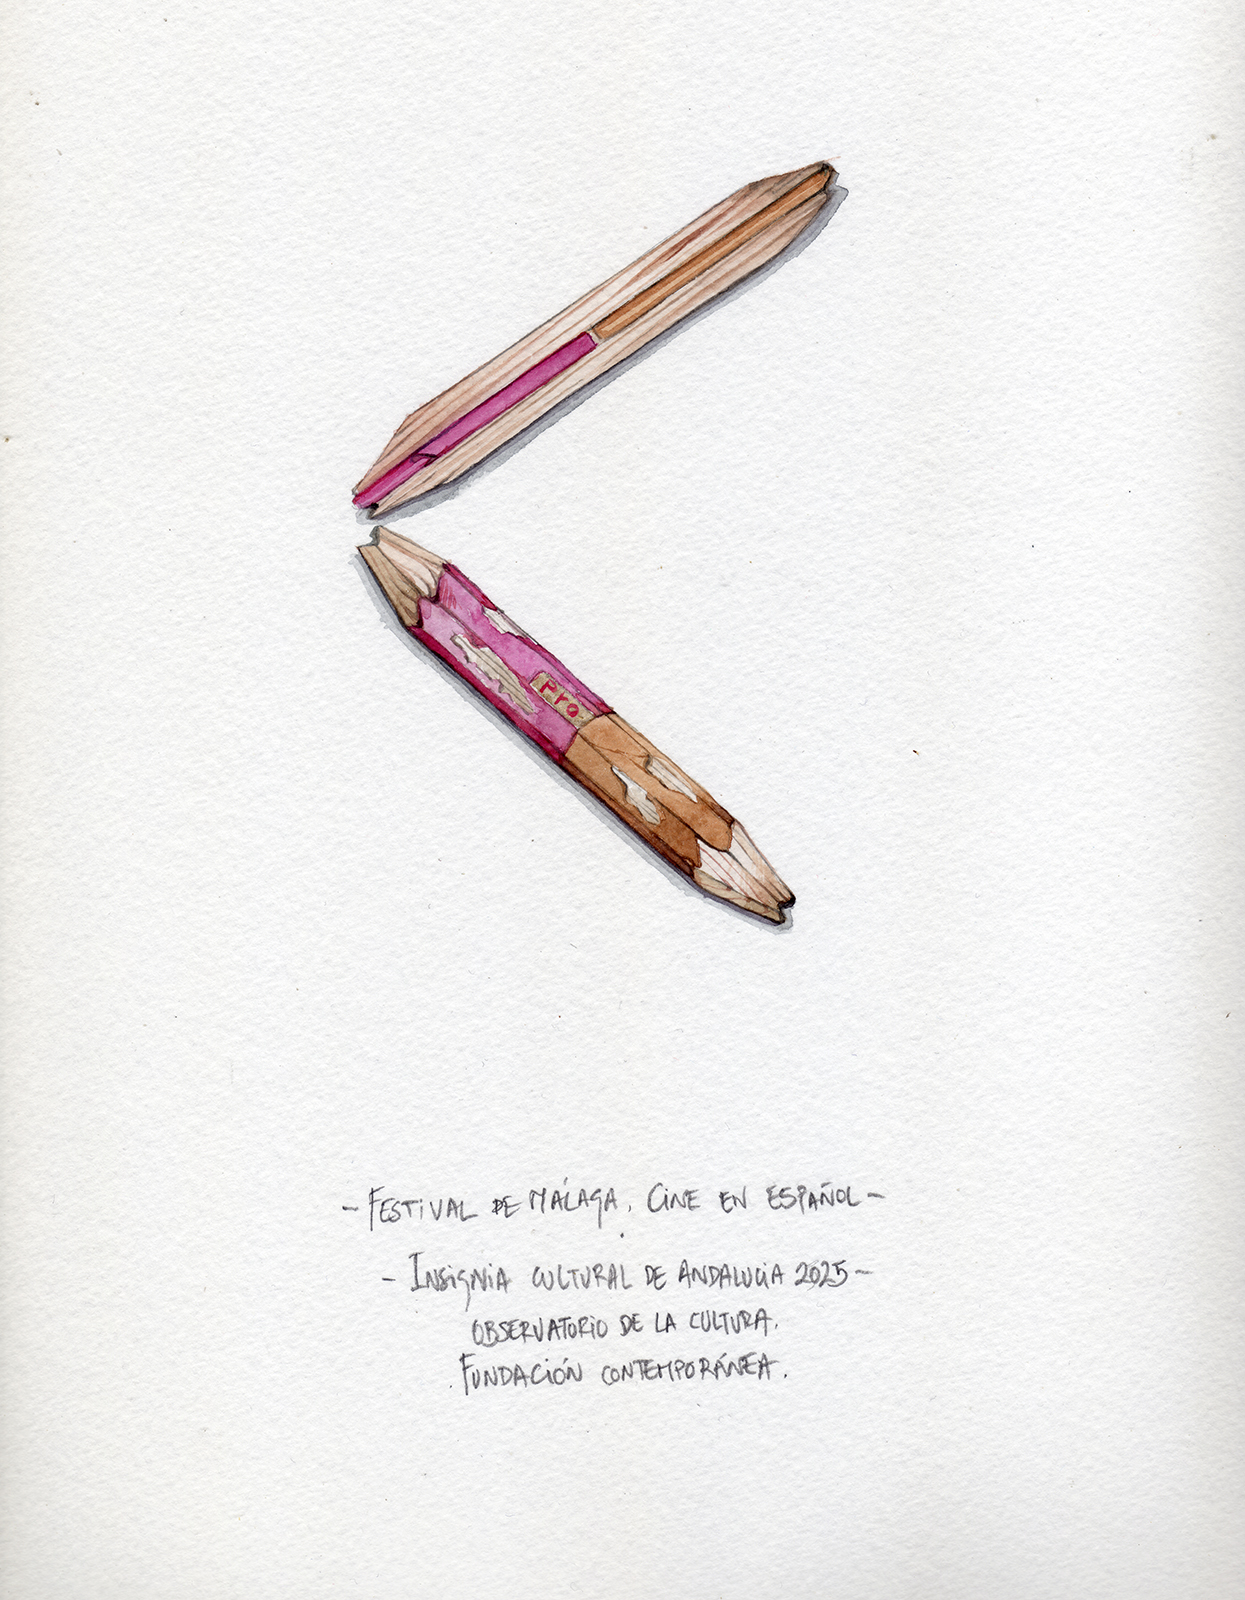 Pro
- FESTIVAL DE MÁLAGA. CINE EN ESPAÑOL -
- INSIGNIA CULTURAL DE ANDALUCIA 2025 -
OBSERVATORIO DE LA CULTURA.
FUNDACIÓN CONTEMPORÁNEA.